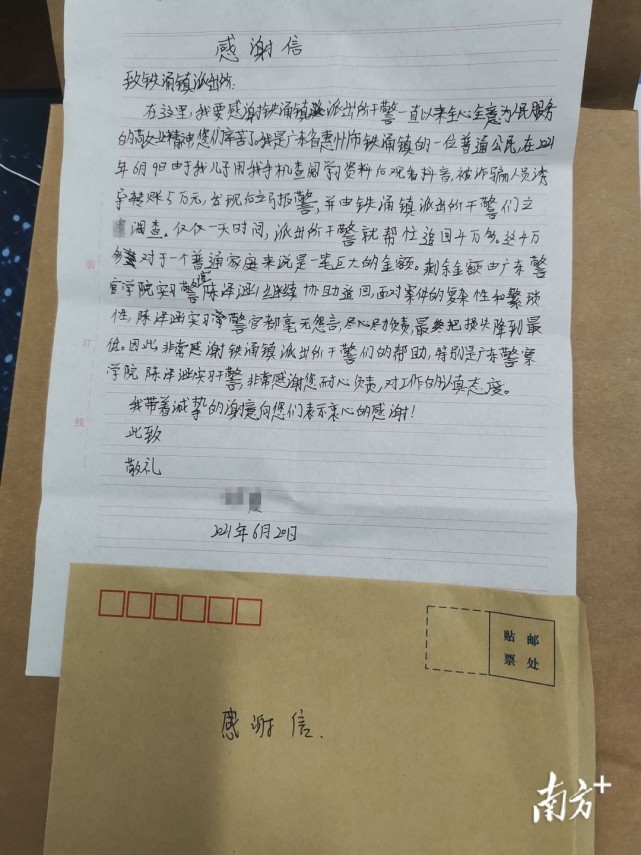 感谢信
致铁涌镇派出所:
在这里,我要感谢铁涌镇派出所干警一直以来全心全意为人民服务
的敬业精神您们辛苦了。我是广东省惠州市铁涌镇的一位普通公民,在2021
年6月9日由于我儿子用我手机查阅学习资料后观看抖音,被诈骗人员诱
导转账5万元,发现后立即报警,并由铁涌镇派出所干警们立
调查。仅仅一天时间,派出所干警就帮忙追回4万多。这4万
多对于一个普通家庭来说是一笔巨大的金额。剩余金额由广东警
官学院实习警官陈泽涵继续协助追回,面对案件的复杂性和繁琐
性,陈泽涵实习警官都毫无怨言,尽心尽力负责最终把损失降到最
低。因此非常感谢铁涌镇派出所干警们的帮助,特别是广东警察
学院陈泽涵实习干警,非常感谢您耐心负责,对工作的认真态度。
我带着诚挚的谢意向您们表示衷心的感谢!
此致
敬礼
2021年6月20日
装
订
线
贴 邮
票 处
感谢信.
南方+